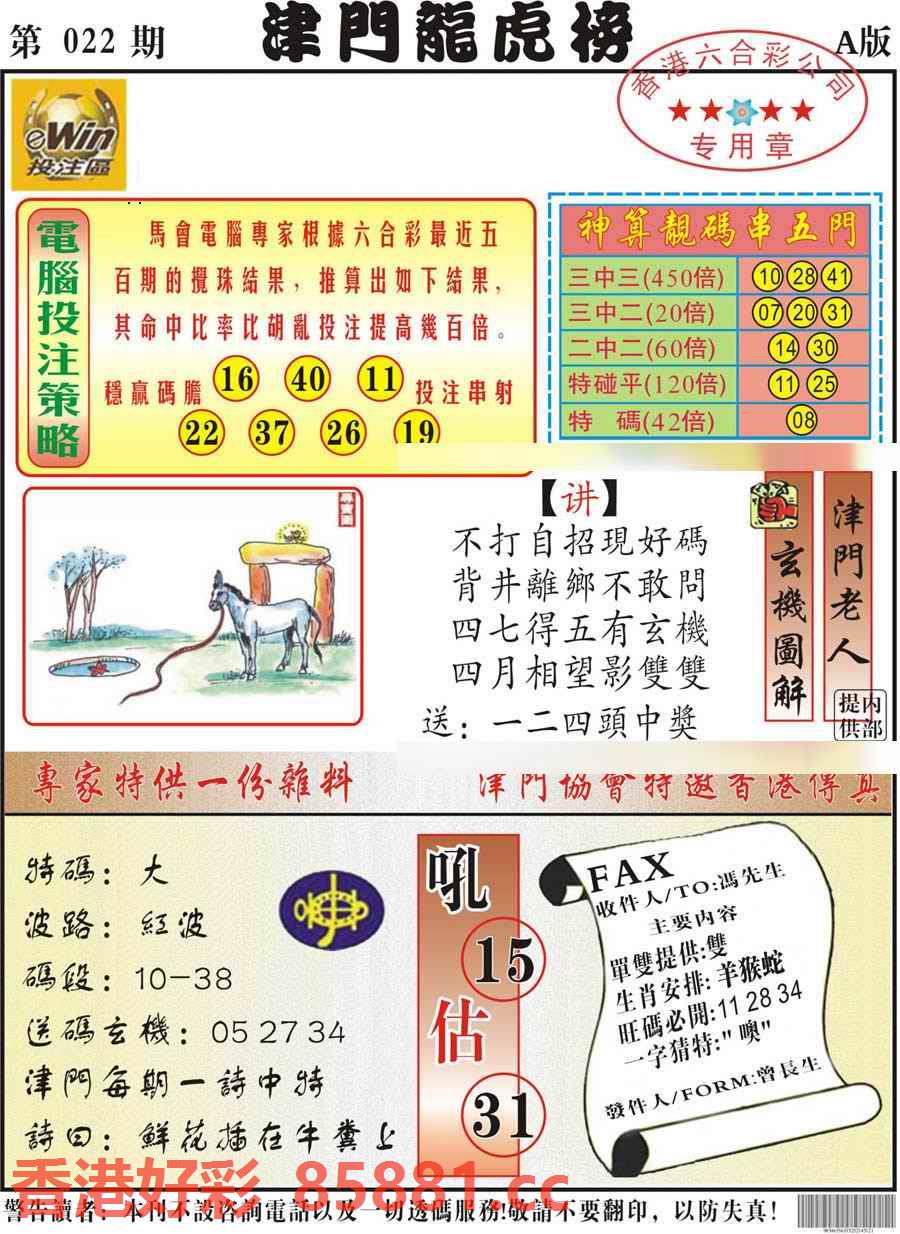 第 022 期
津門龍虎榜
A版
香港六合彩公司
专用章
eWin
投注區
電腦投注策略
馬會電腦專家根據六合彩最近五
百期的攪珠結果，推算出如下結果，
其命中比率比胡亂投注提高幾百倍。
穩贏碼膽 16 40 11 投注串射
22 37 26 19
神算靚碼串五門
三中三(450倍) 10 28 41
三中二(20倍) 07 20 31
二中二(60倍) 14 30
特碰平(120倍) 11 25
特 碼(42倍) 08
【讲】
不打自招現好碼
背井離鄉不敢問
四七得五有玄機
四月相望影雙雙
送：一二四頭中獎
玄機圖解
津門老人
內部
提供
專家特供一份雜料
津門協會特邀香港傳真
特碼：大
波路：紅波
碼段：10-38
送碼玄機：05 27 34
津門每期一詩中特
詩曰：鮮花插在牛糞上
吼
15
估
31
FAX
收件人/TO:馮先生
主要內容
單雙提供:雙
生肖安排:羊猴蛇
旺碼必開:11 28 34
一字猜特:"噢"
發件人/FORM:曾長生
香港好彩 85881.cc
警告讀者：本刊不設咨詢電話以及一切透碼服務!敬請不要翻印，以防失真!